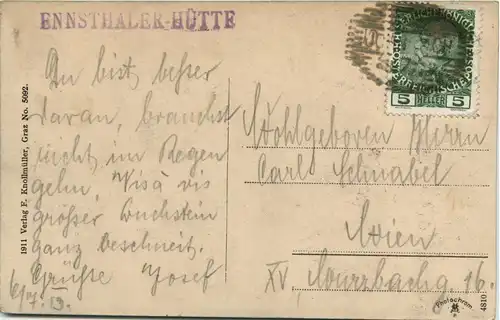 ENNSTHALER-HÜTTE
Du bist besser
daran, brauchst
nicht im Regen
gehn, Visà vis
großer Buchstein
ganz beschneit.
Grüße Josef
6/7. 13.
1911 Verlag E. Knollmüller, Graz No. 5092.
5 HELLER 5
Wohlgeboren Herrn
Carl Schnabel
Wien
XV, 16.
Photochrom
4810